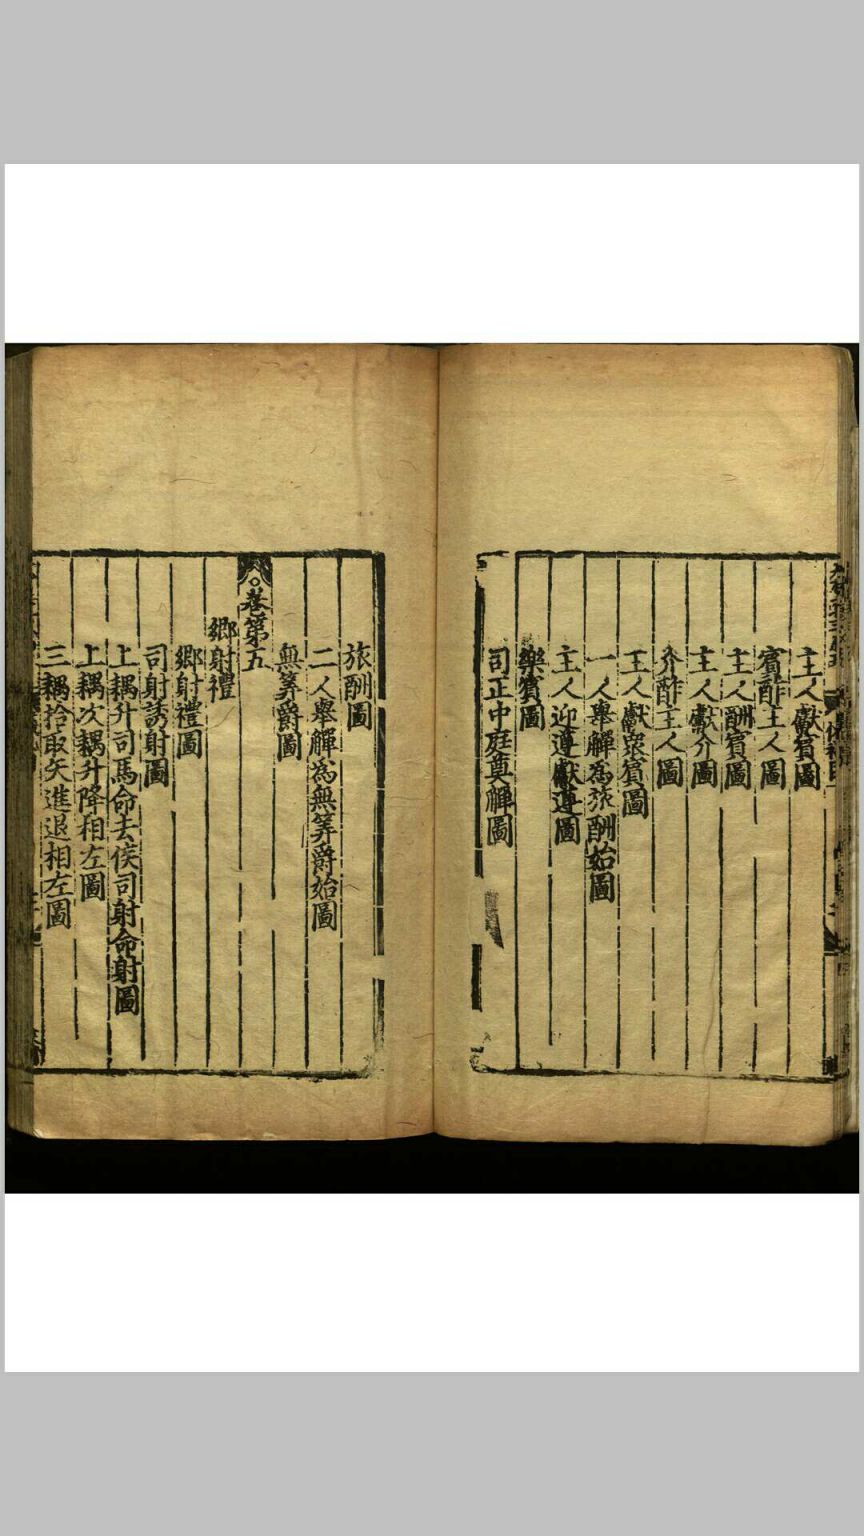 主人獻賓圖
賓酢主人圖
主人酬賓圖
主人獻介圖
介酢主人圖
主人獻衆賓圖
一人舉觶為旅酬始圖
主人迎遵獻遵圖
樂賓圖
司正中庭奠觶圖
旅酬圖
二人舉觶為無筭爵始圖
無筭爵圖
卷第五
鄉射禮
鄉射禮圖
司射誘射圖
上耦升司馬命去侯司射命射圖
上耦次耦升降相左圖
三耦拾取矢進退相左圖